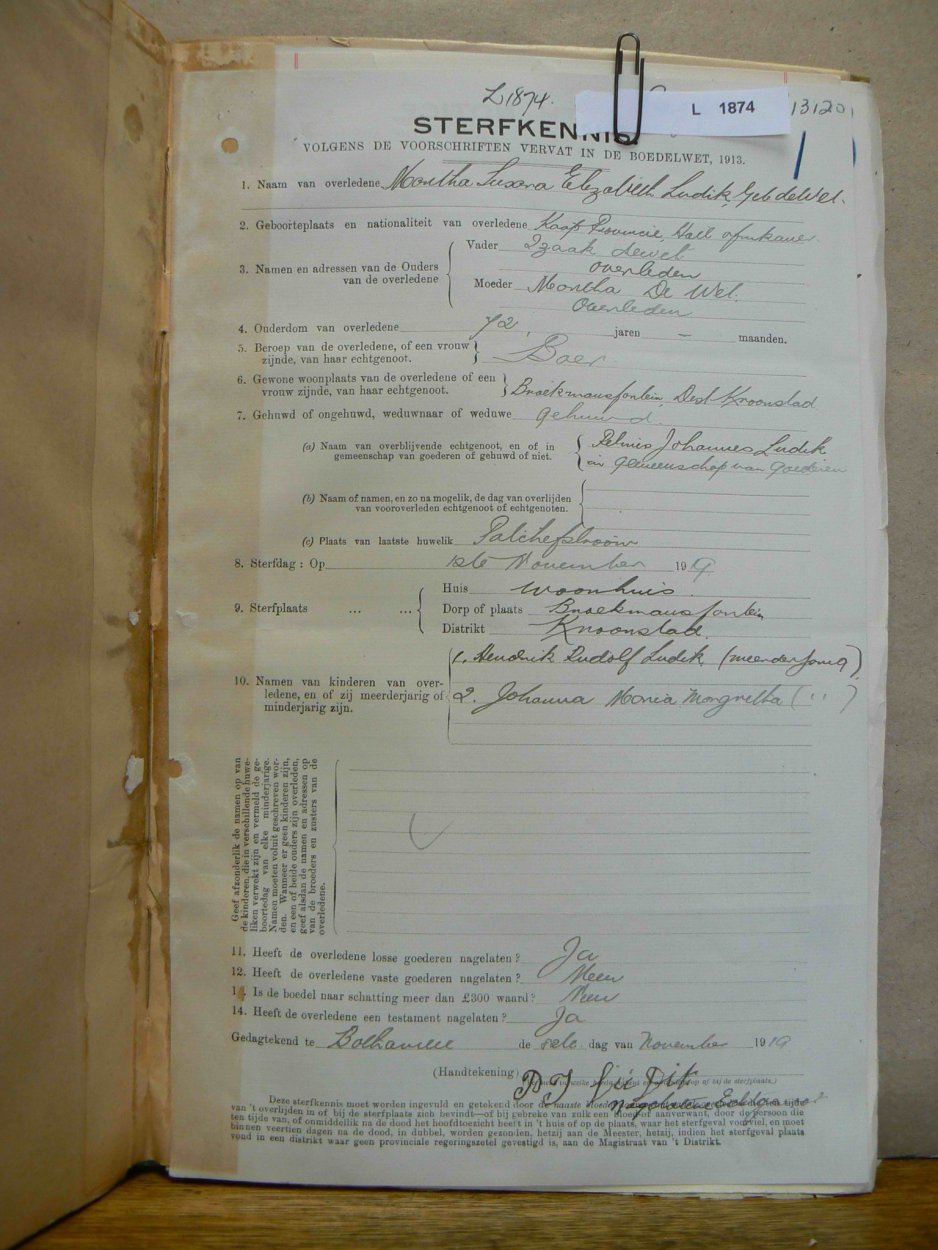 L1874.
L 1874
13120
STERFKENNIS.
VOLGENS DE VOORSCHRIFTEN VERVAT IN DE BOEDELWET, 1913.
1. Naam van overledene Martha Susara Elizabeth Ludik, Geb de Wet.
2. Geboorteplaats en nationaliteit van overledene Kaap Provincie, Holl afrikaner
3. Namen en adressen van de Ouders van de overledene
Vader Izaak dewet
overleden
Moeder Martha De Wet.
Overleden
4. Ouderdom van overledene 72, jaren — maanden.
5. Beroep van de overledene, of een vrouw zijnde, van haar echtgenoot. Boer
6. Gewone woonplaats van de overledene of een vrouw zijnde, van haar echtgenoot. Broekmansfontein, Dest Kroonstad
7. Gehuwd of ongehuwd, weduwnaar of weduwe gehuwd.
(a) Naam van overblijvende echtgenoot, en of in gemeenschap van goederen of gehuwd of niet. Petrus Johannes Ludik
in gemeenschap van goederen
(b) Naam of namen, en zo na mogelik, de dag van overlijden van vooroverleden echtgenoot of echtgenoten.
(c) Plaats van laatste huwelik Patchefstroom
8. Sterfdag : Op 1ste November 1919
9. Sterfplaats ... ...
Huis woonhuis.
Dorp of plaats Broekmansfontein
Distrikt Kroonstad.
10. Namen van kinderen van overledene, en of zij meerderjarig of minderjarig zijn.
1. Hendrik Rudolf Ludik (meerderjarig)
2. Johanna Maria Margretha ( " )
Geef afzonderlik de namen op van
de kinderen, die in verschillende huwe-
liken verwekt zijn en vermeld de ge-
boortedag van elke minderjarige.
Namen moeten voluit geschreven wor-
den. Wanneer er geen kinderen zijn,
en een of beide ouders zijn overleden,
geef alsdan de namen en adressen op
van de broeders en zusters van de
overledene.
11. Heeft de overledene losse goederen nagelaten ? Ja
12. Heeft de overledene vaste goederen nagelaten ? Neen
1 . Is de boedel naar schatting meer dan £300 waard ? Neen
14. Heeft de overledene een testament nagelaten ? Ja
Gedagtekend te Bothaville de dag van November 1919
(Handtekening) P J Lü Dik
Deze sterfkennis moet worden ingevuld en getekend door de naaste bloed
van 't overlijden in of bij de sterfplaats zich bevindt—of bij gebreke van zulk een bloed- of aanverwant, door de persoon die
ten tijde van, of onmiddellik na de dood het hoofdtoezicht heeft in 't huis of op de plaats, waar het sterfgeval voorviel, en moet
binnen veertien dagen na de dood, in dubbel, worden gezonden, hetzij aan de Meester, hetzij, indien het sterfgeval plaats
vond in een distrikt waar geen provinciale regeringszetel gevestigd is, aan de Magistraat van 't Distrikt.